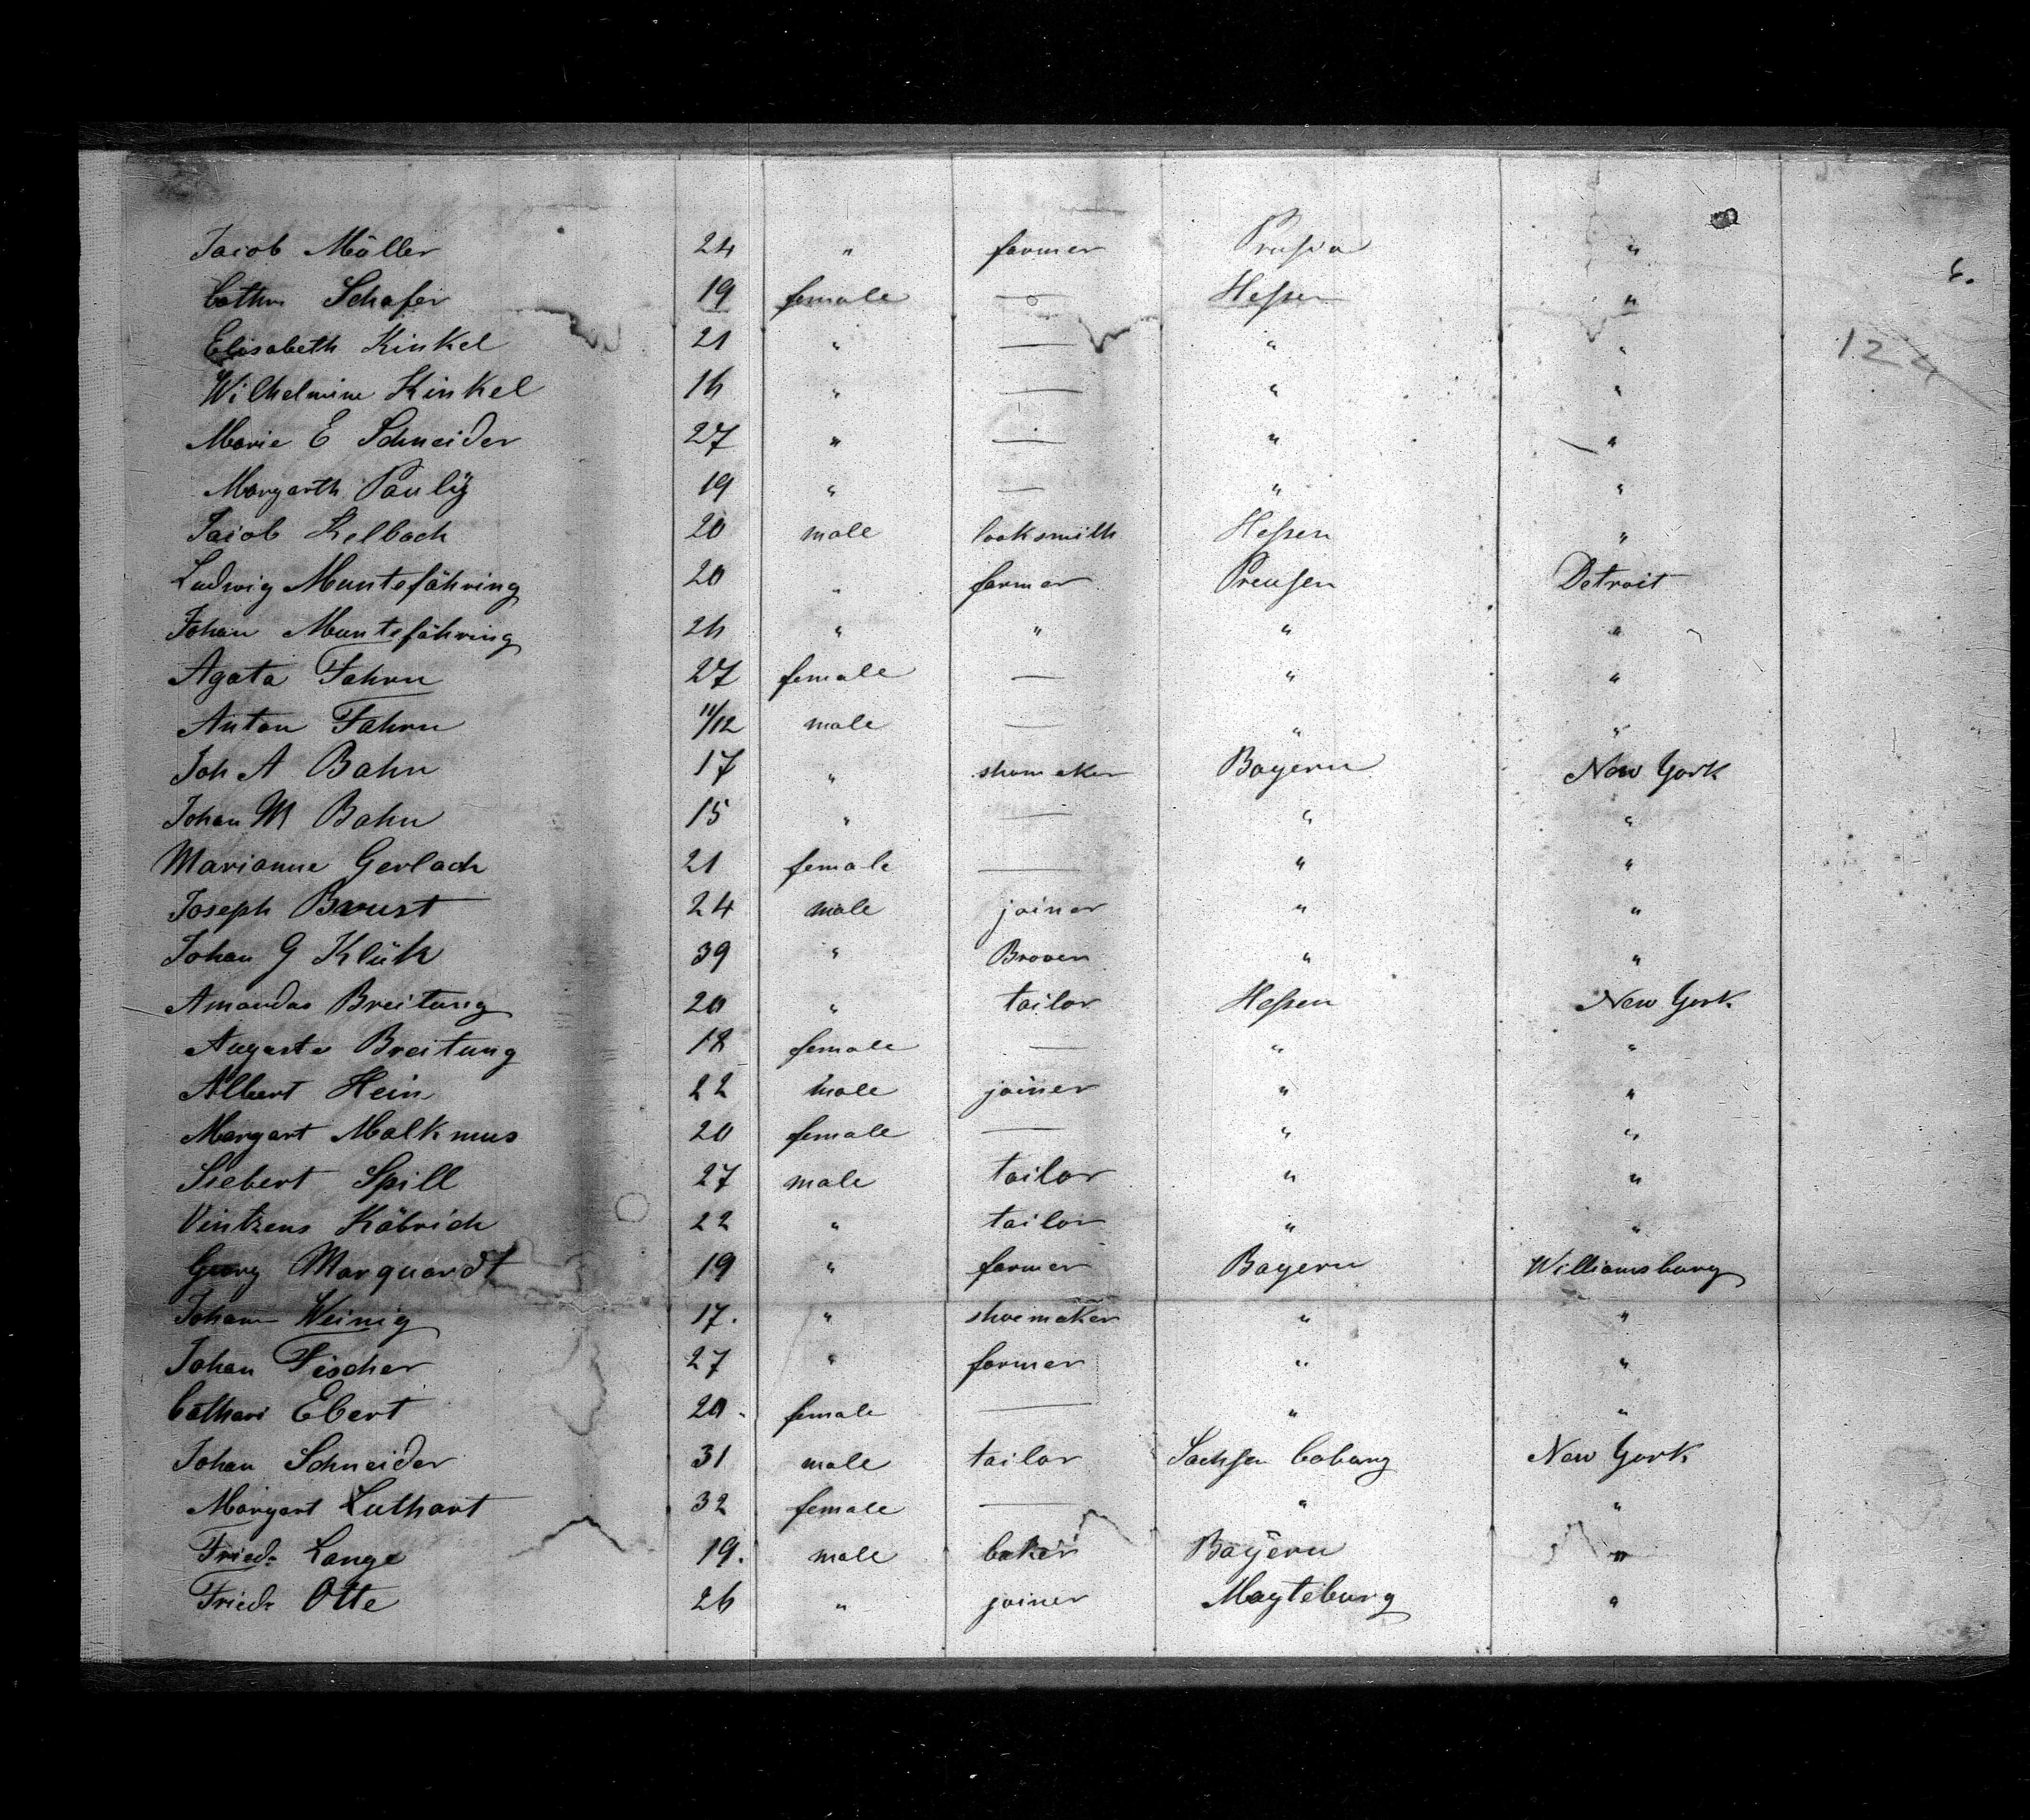 Jacob Möller 24 " farmer Prussia "
Cathr. Schafer 19 female — Hessen "
6.
Elisabeth Kinkel 21 " — " "
124
Wilhelmine Kinkel 16 " — " "
Marie E Schneider 27 " — " "
Margarth Paulÿ 19 " — " "
Jacob Kelbach 20 male looksmith Hessen "
Ludwig Muntefähring 20 " farmer Preusen Detroit
Johan Muntefähring 26 " " " "
Agata Fahrn 27 female — " "
Anton Fahrn 11/12 male — " "
Joh A Bahn 17 " shumaker Bayern New York
Johan M Bahn 15 " — " "
Marianne Gerlach 21 female — " "
Joseph Brust 24 male joiner " "
Johan G Klük 39 " Brower " "
Amandas Breitung 20 " tailor Hessen New York
Auguste Breitung 18 female — " "
Albert Hein 22 male joiner " "
Margart Malkmus 20 female — " "
Siebert Spill 27 male tailor " "
Vintzens Käbrich 22 " tailor " "
Georg Marquardt 19 " farmer Bayern Williamsburg
Johann Weinig 17. " shoemaker " "
Johan Fischer 27 " farmer " "
Cathari Ebert 20. female — " "
Johan Schneider 31 male tailor Sachsen Coburg New York
Margart Luthart 32 female — " "
Friedr Lange 19. male baker Bayern "
Friedr Otte 26 " joiner Magteburg "